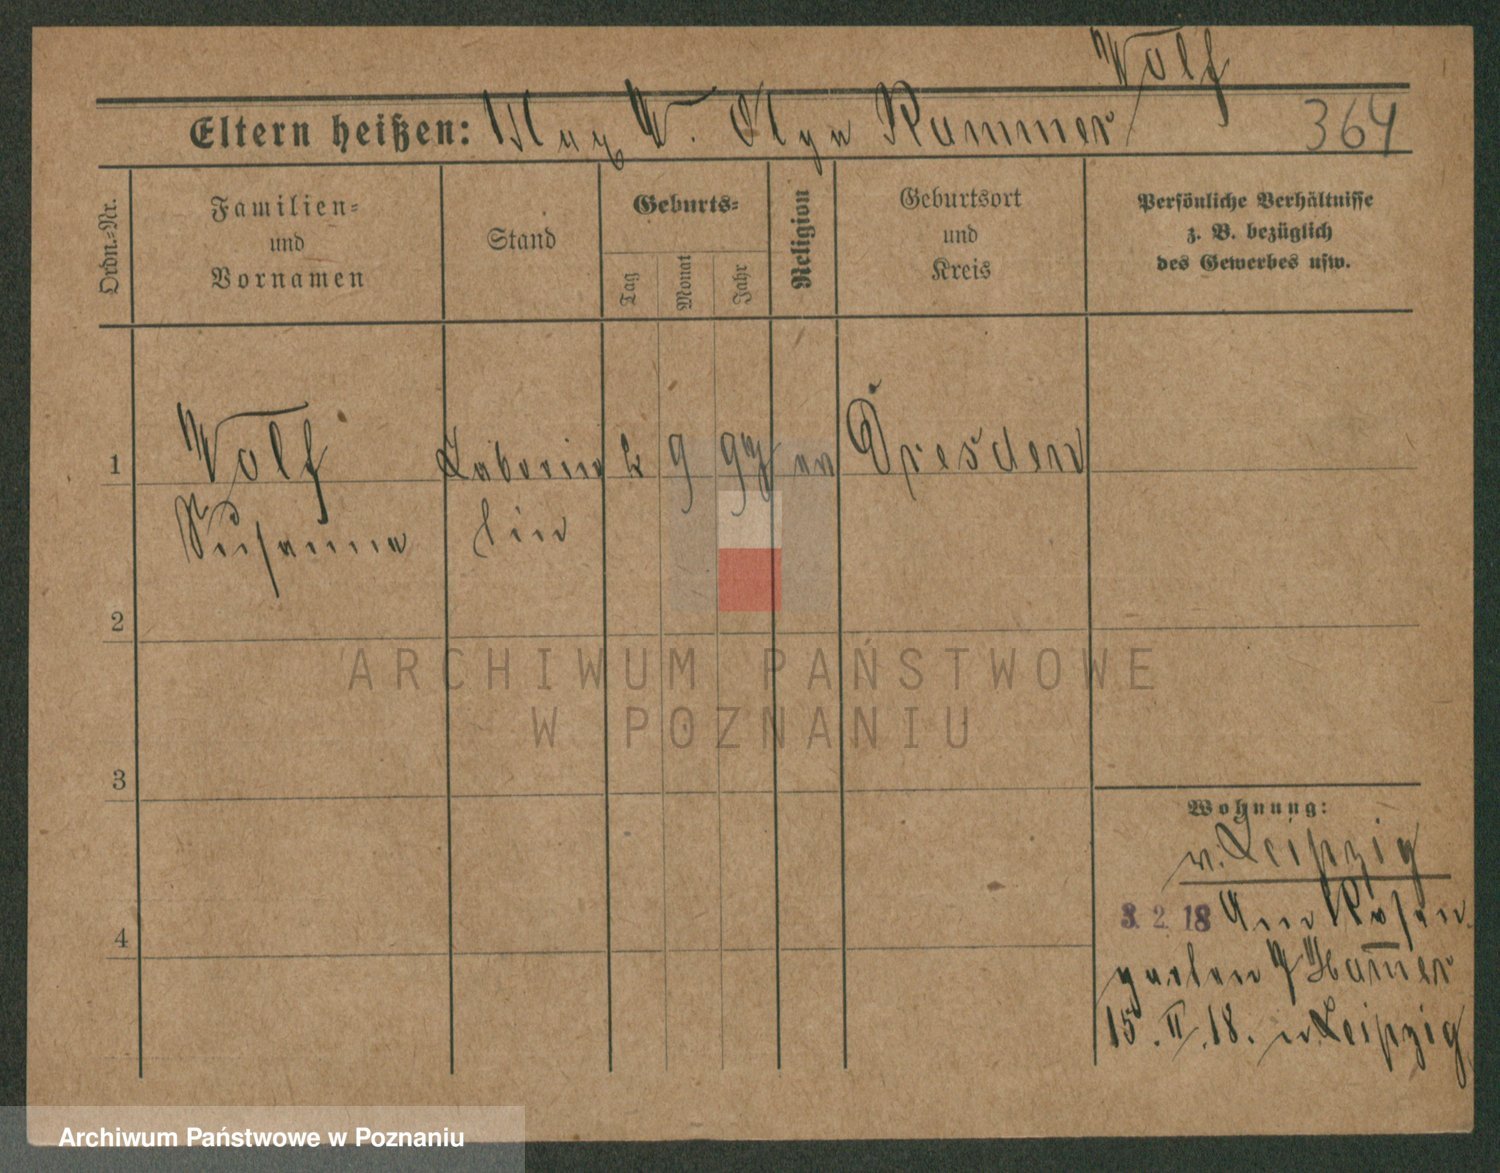 Wolf
Eltern heißen: Max W. Olga Rammer
364
Ordn.-Nr.
Familien-
und
Vornamen
Stand
Geburts-
Tag
Monat
Jahr
Religion
Geburtsort
und
Kreis
Persönliche Verhältnisse
z. B. bezüglich
des Gewerbes usw.
1
Wolf
9
97
ev
Dresden
Susanne
2
ARCHIWUM PAŃSTWOWE
W POZNANIU
3
Wohnung:
v. Leipzig
3. 2. 18 Am Rosen
4
garten 7
15. II. 18. n. Leipzig
Archiwum Państwowe w Poznaniu